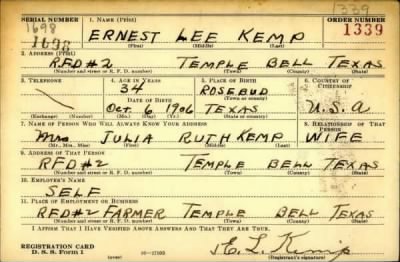 1339
SERIAL NUMBER 1. NAME (Print) ORDER NUMBER
1698
1698 ERNEST LEE KEMP 1339
(First) (Middle) (Last)
2. ADDRESS (Print)
RFD #2 TEMPLE BELL TEXAS
(Number and street or R. F. D. number) (Town) (County) (State)
3. TELEPHONE 4. AGE IN YEARS 5. PLACE OF BIRTH 6. COUNTRY OF CITIZENSHIP
34 ROSEBUD
DATE OF BIRTH (Town or county)
Oct 6 1906 TEXAS U.S.A
(Exchange) (Number) (Mo.) (Day) (Yr.) (State or country)
7. NAME OF PERSON WHO WILL ALWAYS KNOW YOUR ADDRESS 8. RELATIONSHIP OF THAT PERSON
Mrs JULIA RUTH KEMP WIFE
(Mr., Mrs., Miss) (First) (Middle) (Last)
9. ADDRESS OF THAT PERSON
RFD #2 TEMPLE BELL TEXAS
(Number and street or R. F. D. number) (Town) (County) (State)
10. EMPLOYER'S NAME
SELF
11. PLACE OF EMPLOYMENT OR BUSINESS
RFD #2 FARMER TEMPLE BELL TEXAS
(Number and street or R. F. D. number) (Town) (County) (State)
I AFFIRM THAT I HAVE VERIFIED ABOVE ANSWERS AND THAT THEY ARE TRUE.
REGISTRATION CARD
D. S. S. Form 1 (over) E. L. Kemp
(Registrant's signature)